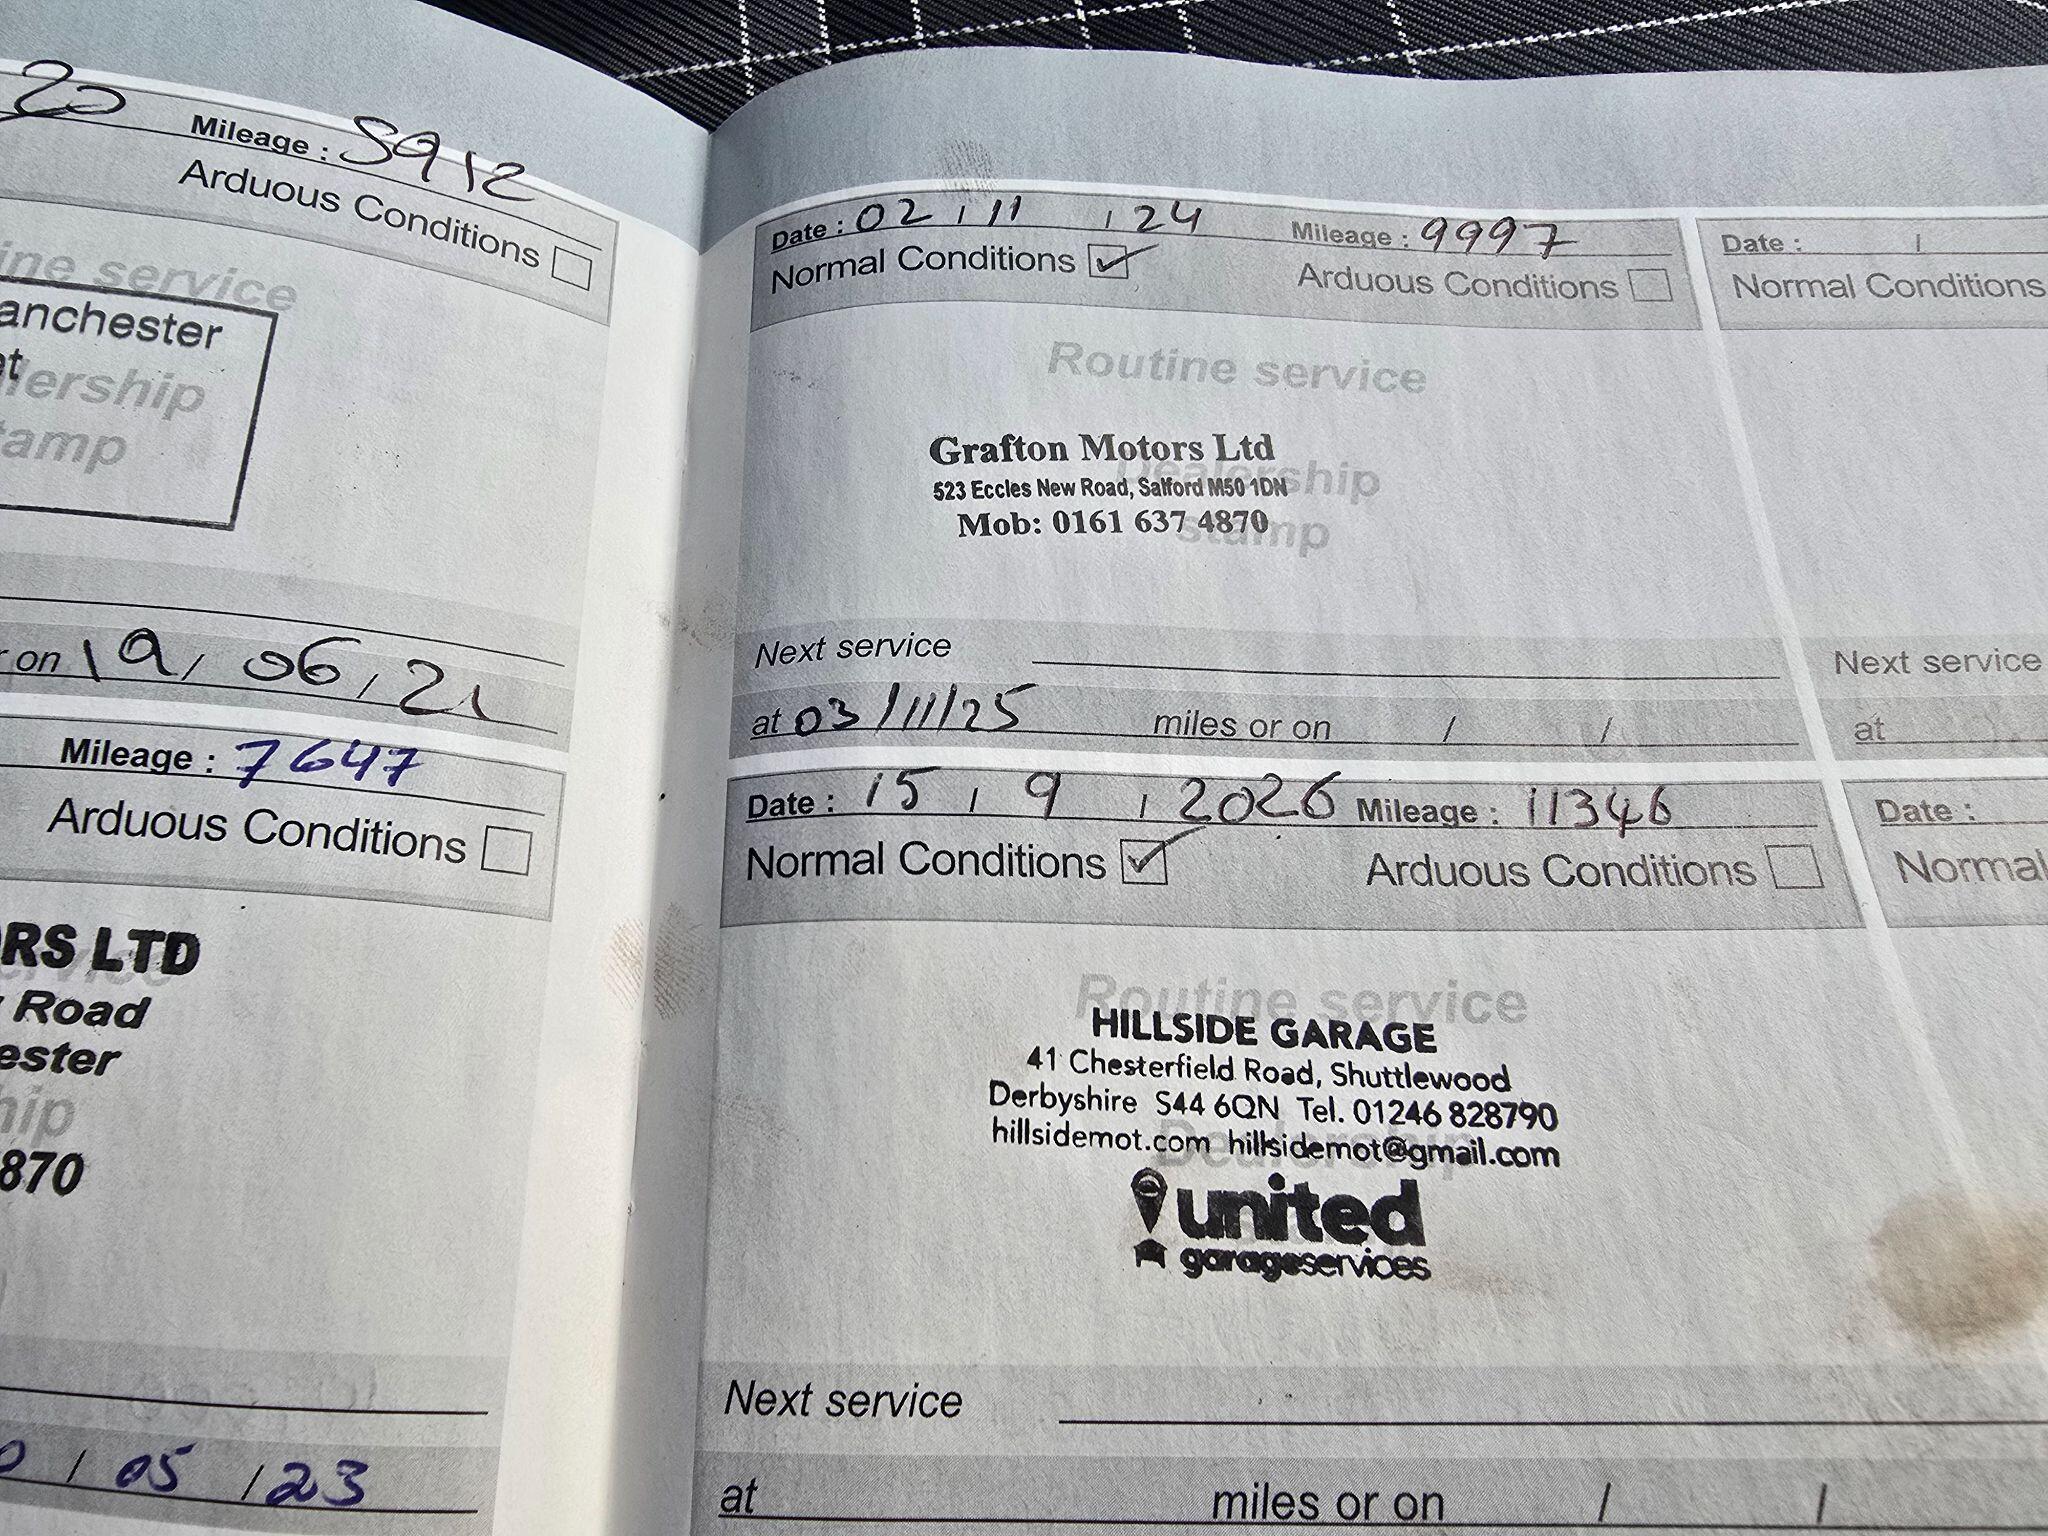 20 Mileage : 5912
Arduous Conditions
ine service
anchester
et
lership
tamp
on 19 / 06 / 21
Mileage : 7647
Arduous Conditions
RS LTD
Road
ester
hip
870
/ 05 / 23
Date : 02 / 11 / 24 Mileage : 9997
Normal Conditions Arduous Conditions
Routine service
Grafton Motors Ltd
Dealership
523 Eccles New Road, Salford M50 1DN
Mob: 0161 637 4870
stamp
Next service
at 03/11/25 miles or on / /
Date : 15 / 9 / 2026 Mileage : 11346
Normal Conditions Arduous Conditions
Routine service
HILLSIDE GARAGE
41 Chesterfield Road, Shuttlewood
Derbyshire S44 6QN Tel. 01246 828790
hillsidemot.com hillsidemot@gmail.com
Dealership
united
garageservices
Next service
at miles or on / /
Date : /
Normal Conditions
Next service
at
Date :
Normal